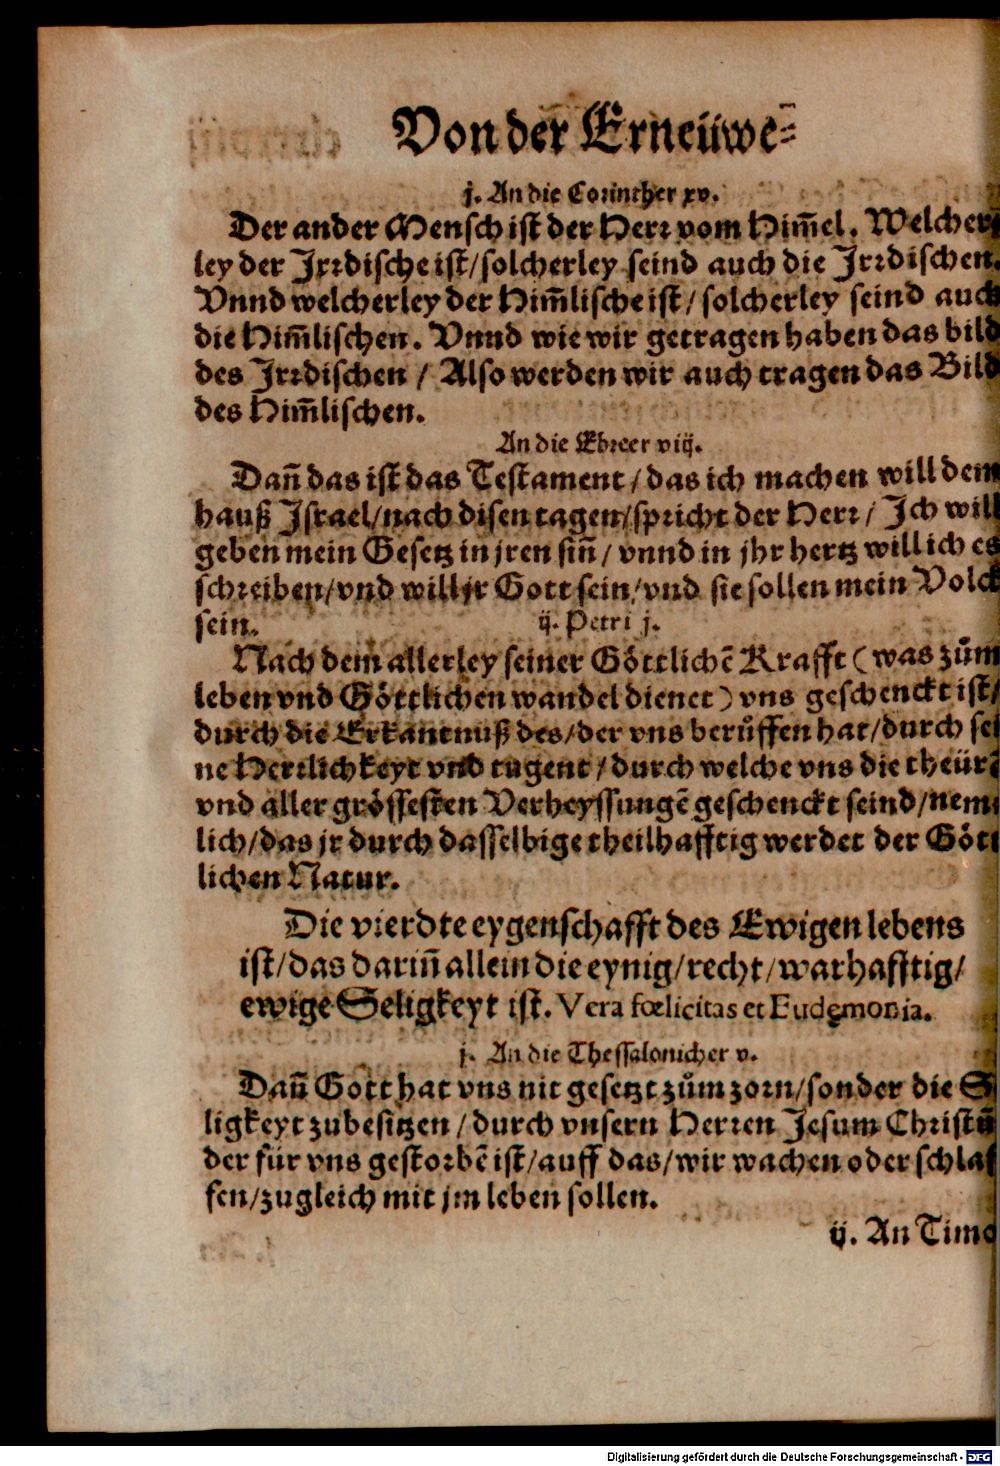 Von der Erneüwe⸗
j. An die Corinther xv.
Der ander Mensch ist der Herr vom Him̃el. Welcher
ley der Jrrdische ist/solcherley seind auch die Jrrdischen.
Vnnd welcherley der Him̃lische ist/ solcherley seind auch
die Him̃lischen. Vnnd wie wir getragen haben das bild
des Jrrdischen / Also werden wir auch tragen das Bild
des Him̃lischen.
An die Ebreer viij.
Dañ das ist das Testament / das ich machen will dem
hauß Jsrael/nach disen tagen/spricht der Herr / Jch will
geben mein Gesetz in jren siñ / vnnd in jhr hertz will ich es
schreiben/vnd will jr Gott sein/vnd sie sollen mein Volck
sein. ij. Petri j.
Nach dem allerley seiner Göttlichẽ Krafft ( was zům
leben vnd Göttlichen wandel dienet ) vns geschenckt ist/
durch die Erkantnuß des/der vns berůffen hat/durch sei
ne Herrlichkeyt vnd tugent / durch welche vns die theürẽ
vnd aller grössesten Verheyssungẽ geschenckt seind/nem⸗
lich/das jr durch dasselbige theilhafftig werdet der Göt⸗
lichen Natur.
Die vierdte eygenschafft des Ewigen lebens
ist/das dariñ allein die eynig/recht/warhafftig/
ewige Seligkeyt ist. Vera fœlicitas et Eudęmonia.
j. An die Thessalonicher v.
Dañ Gott hat vns nit gesetzt zům zorn/sonder die S
ligkeyt zubesitzen / durch vnsern Herren Jesum Christũ
der für vns gestorbẽ ist/auff das/wir wachen oder schlaf
fen/zugleich mit jm leben sollen.
ij. An Timo
Digitalisierung gefördert durch die Deutsche Forschungsgemeinschaft - DFG